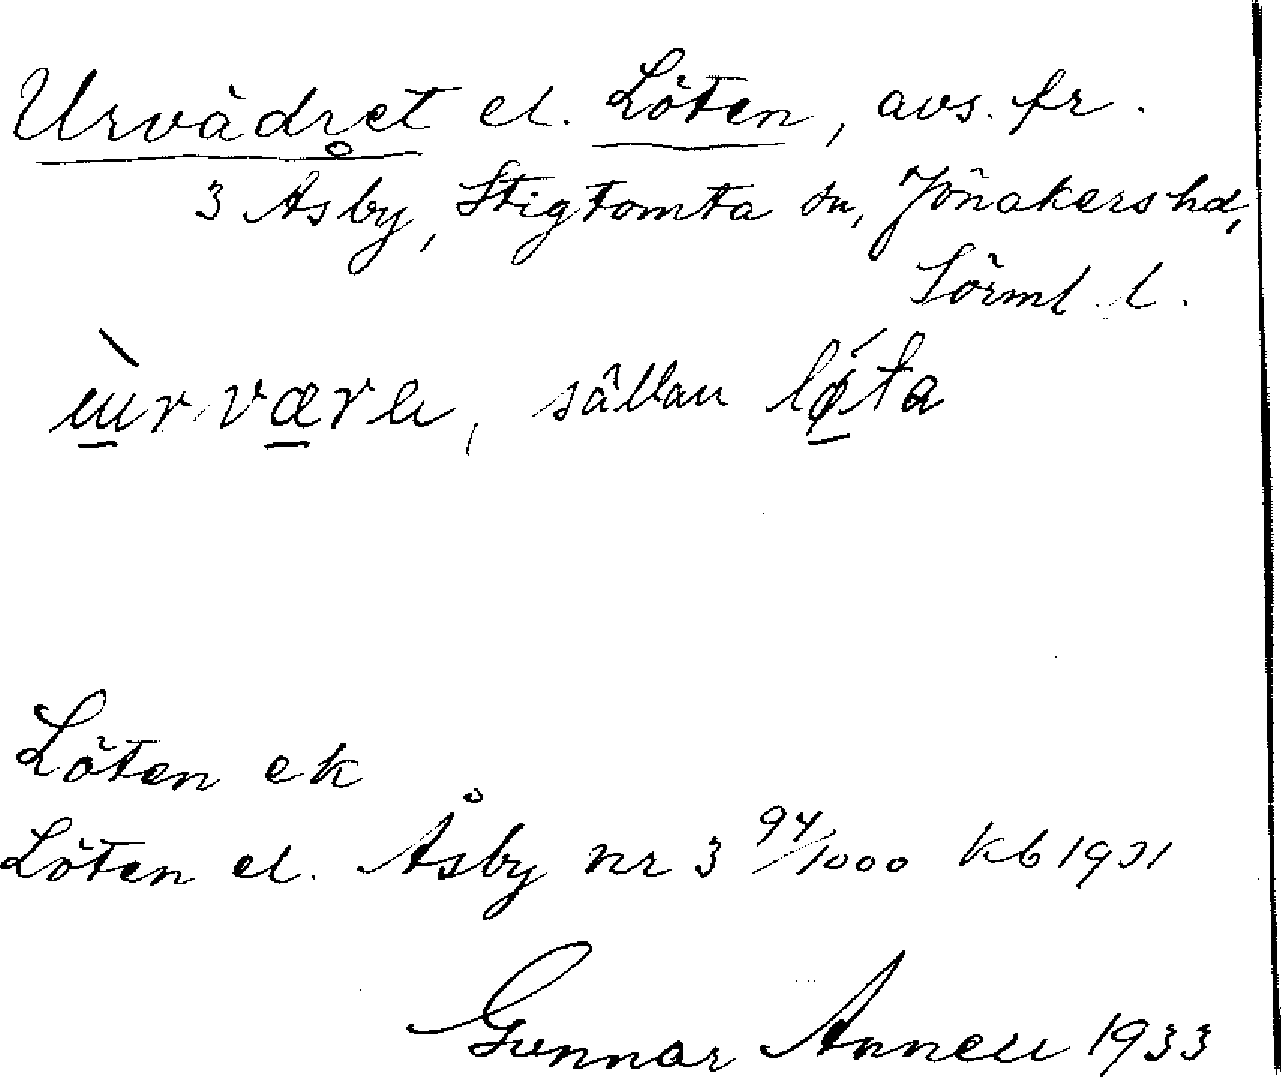 Urvädret el. Löten, avs. fr.
3 Åsby, Stigtomta sn, Jönåkers hd,
Sörml. l.
ùrvære, sällan lǿta
Löten ek
Löten el. Åsby nr 3 94/1000 kb 1931
Gunnar Annell 1933